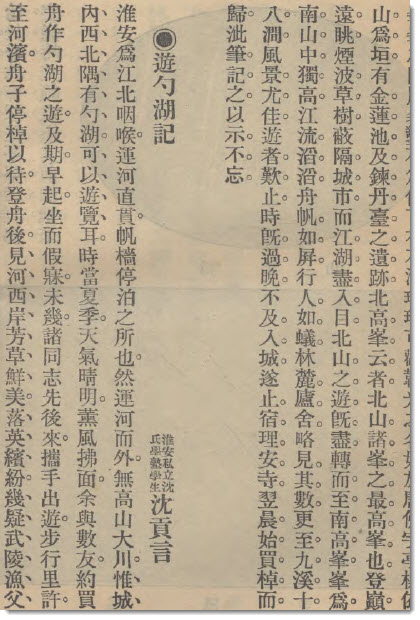 山爲垣有金蓮池及鍊丹臺之遺跡北高峯云者北山諸峯之最高峯也登巔
遠眺煙波草樹蔽隔城市而江湖盡入目北山之遊旣盡轉而至南高峯峯爲
南山中獨高江流滔滔舟帆如屏行人如蟻林麓廬舍略見其數更至九溪十
八澗風景尤佳遊者歎止時旣過晚不及入城遂止宿理安寺翌晨始買棹而
歸泚筆記之以示不忘
◉遊勺湖記
淮安私立沈
氏學塾學生
沈貢言
淮安爲江北咽喉運河直貫帆檣停泊之所也然運河而外無高山大川惟城
內西北隅有勺湖可以遊覽耳時當夏季天氣晴明薰風拂面余與數友約買
舟作勺湖之遊及期早起坐而假寐未幾諸同志先後來攜手出遊步行里許
至河濱舟子停棹以待登舟後見河西岸芳草鮮美落英繽紛幾疑武陵漁父